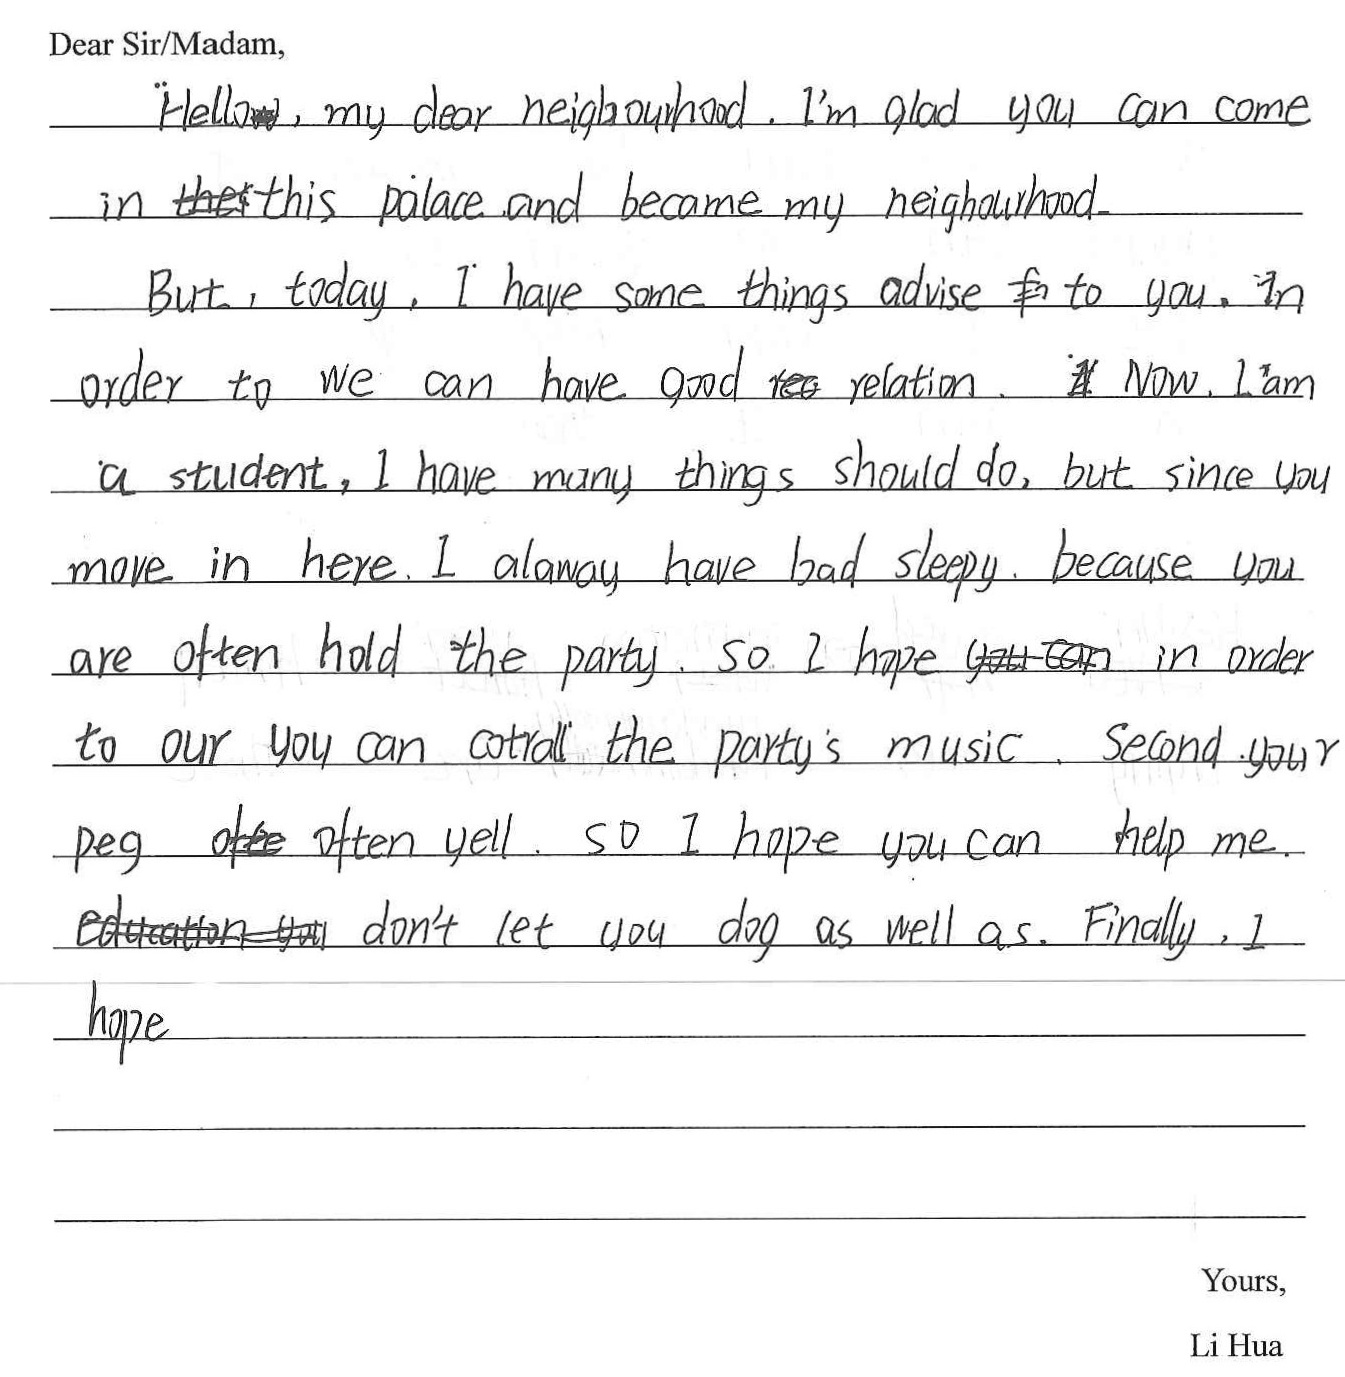 Dear Sir/Madam,
Hello, my dear neigbourhood. I'm glad you can come
in this palace and became my neighourhood.
But, today, I have some things advise to you. In
order to we can have good relation. Now, I am
a student, I have many things should do, but since you
move in here. I alaway have bad sleepy. because you
are often hold the party. so I hope in order
to our you can cotrall the party's music. Second your
peg often yell. so I hope you can help me.
don't let you dog as well as. Finally, I
hope
Yours,
Li Hua